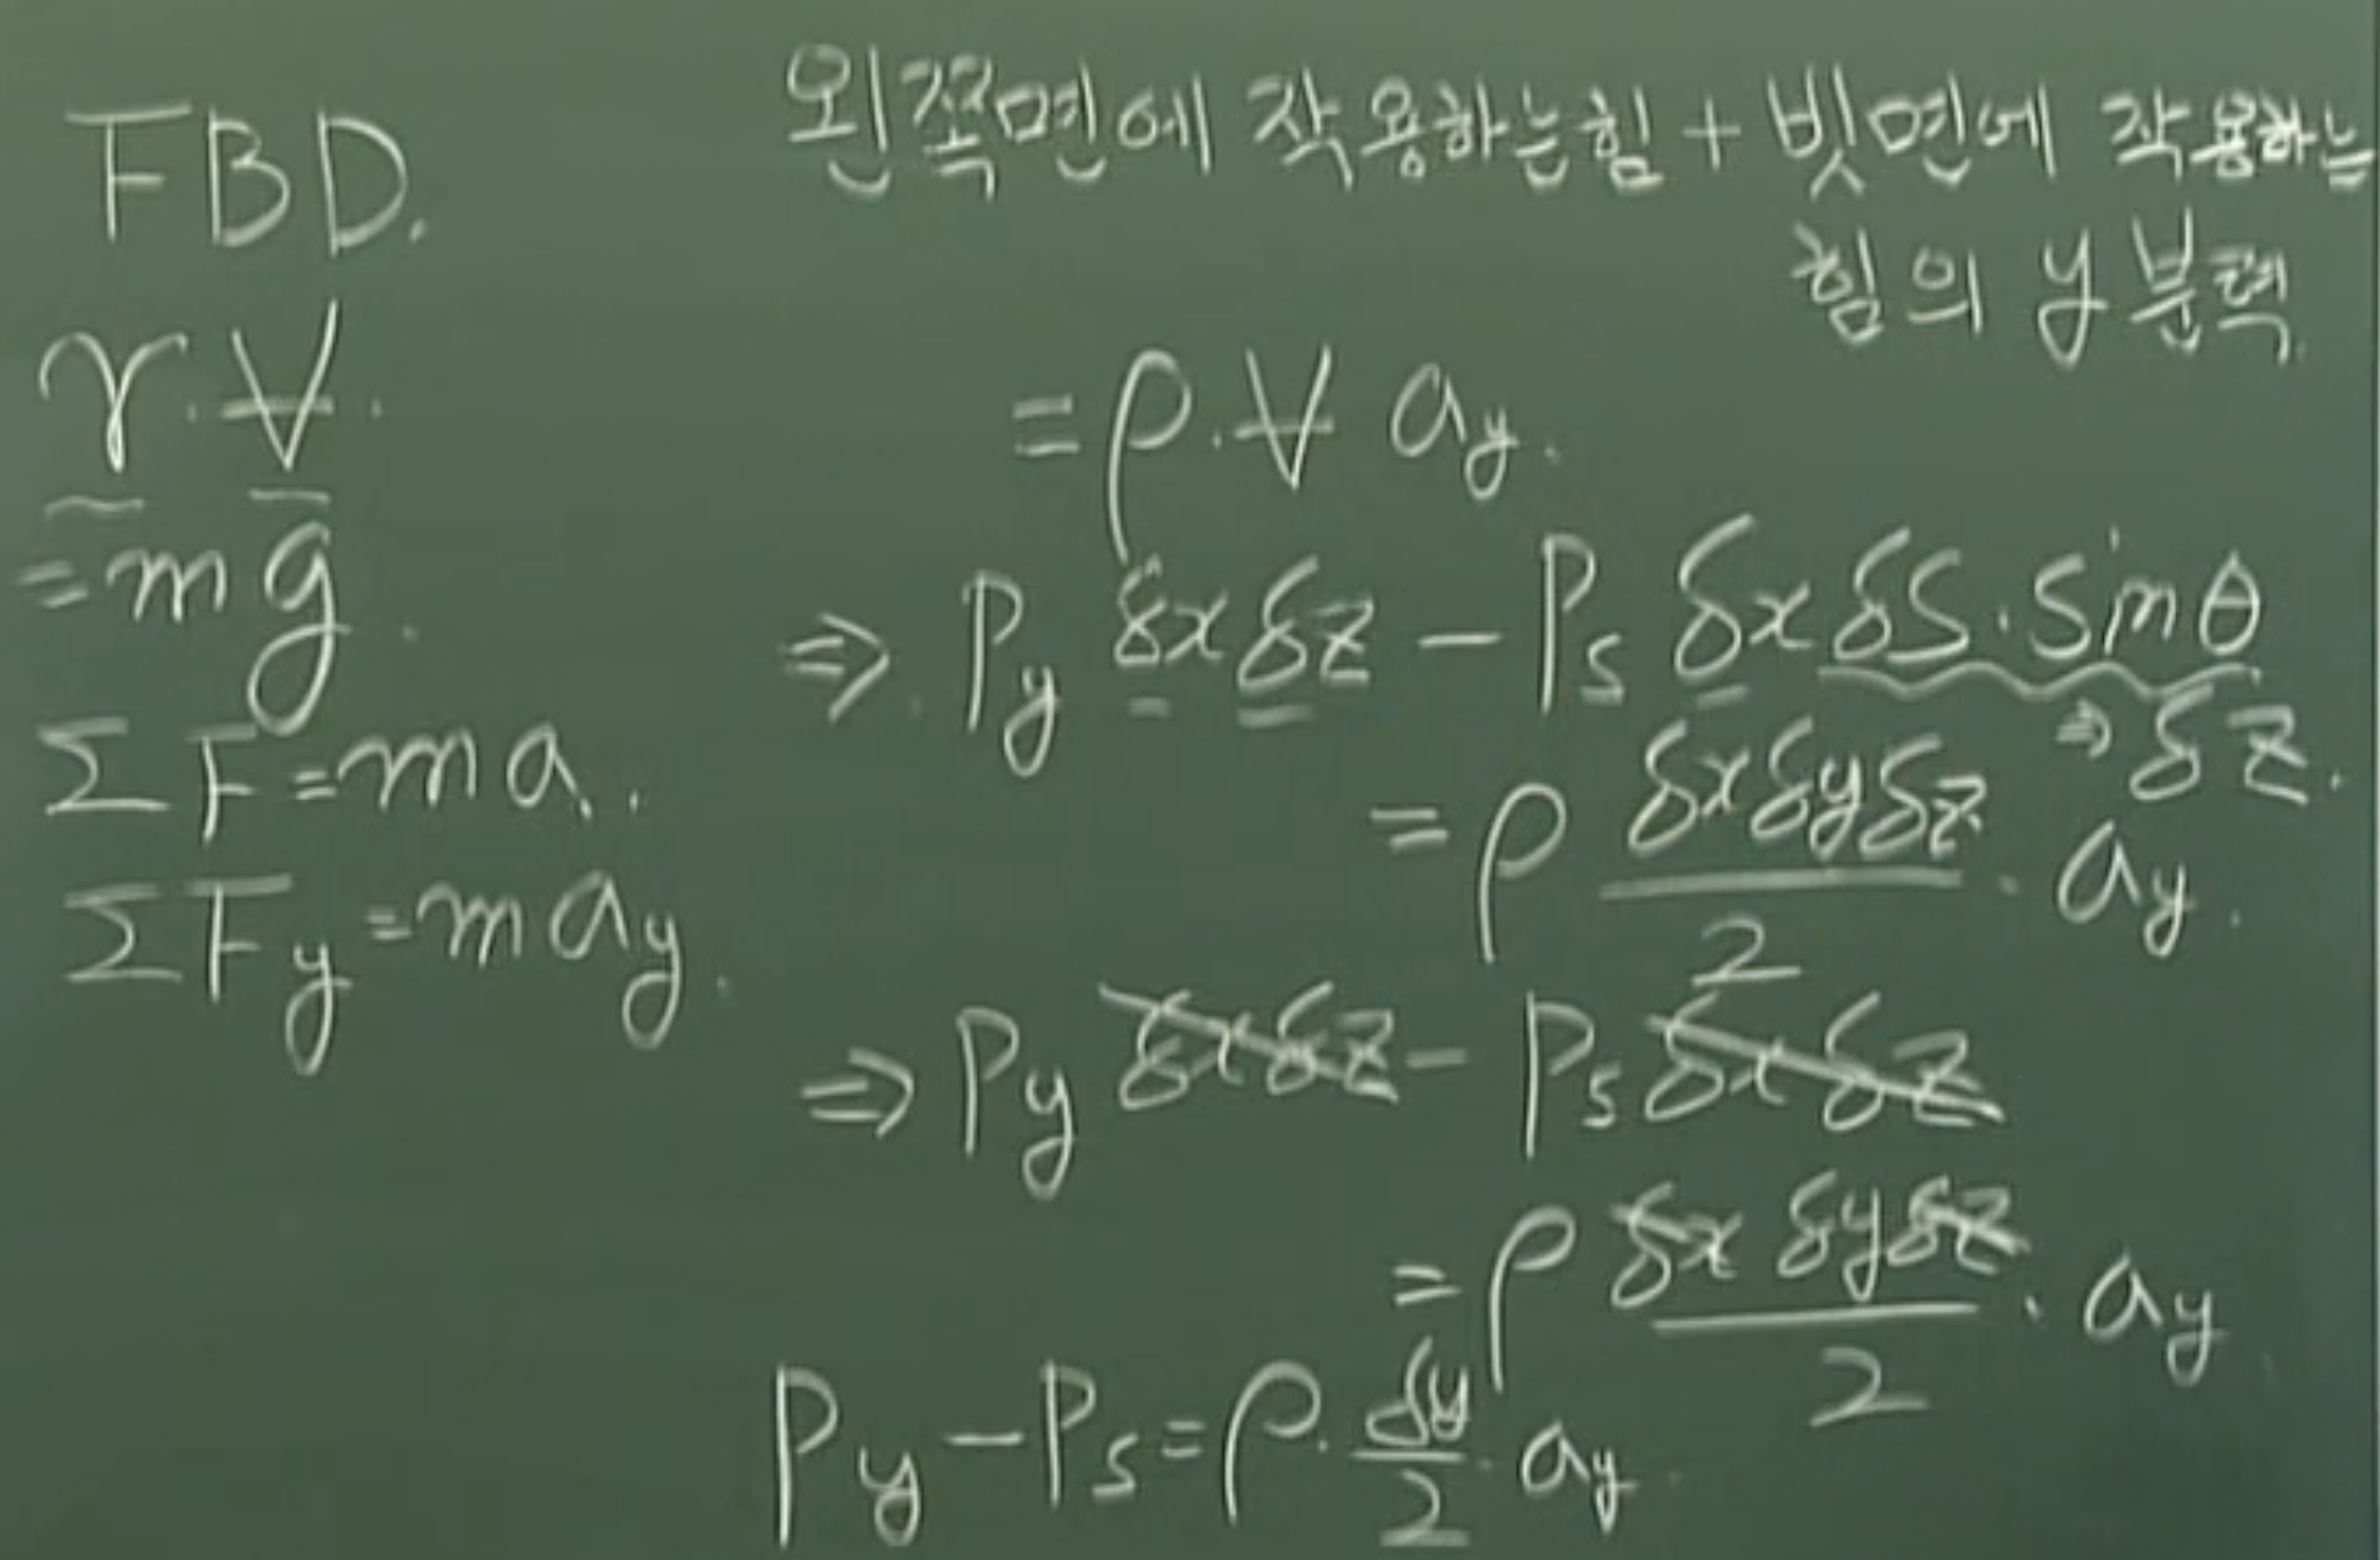 FBD.
γ.V.
=mg.
ΣF=ma.
ΣFy=may.
왼쪽면에 작용하는힘+빗면에 작용하는
힘의 y분력.
=ρ.V ay.
⇒. Py δxδz - Ps δxδs.sinθ
⇒δz.
=ρ δxδyδz/2 . ay.
⇒Py δxδz - Ps δxδz
=ρ δx δyδz/2 . ay
Py-Ps=ρ. δy/2 . ay.